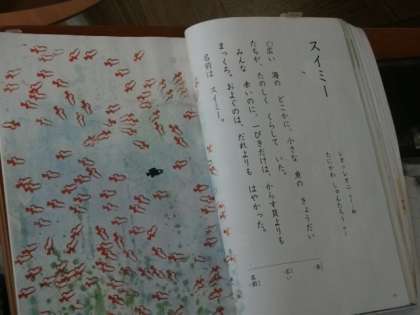 スイミー
レオ=レオニ さく
たにかわ しゅんたろう やく
広い 海の どこかに、小さな 魚の きょうだい
たちが、たのしく くらして いた。
みんな 赤いのに、一ぴきだけは、からす貝よりも
まっくろ。およぐのは、だれよりも はやかった。
名前は スイミー。